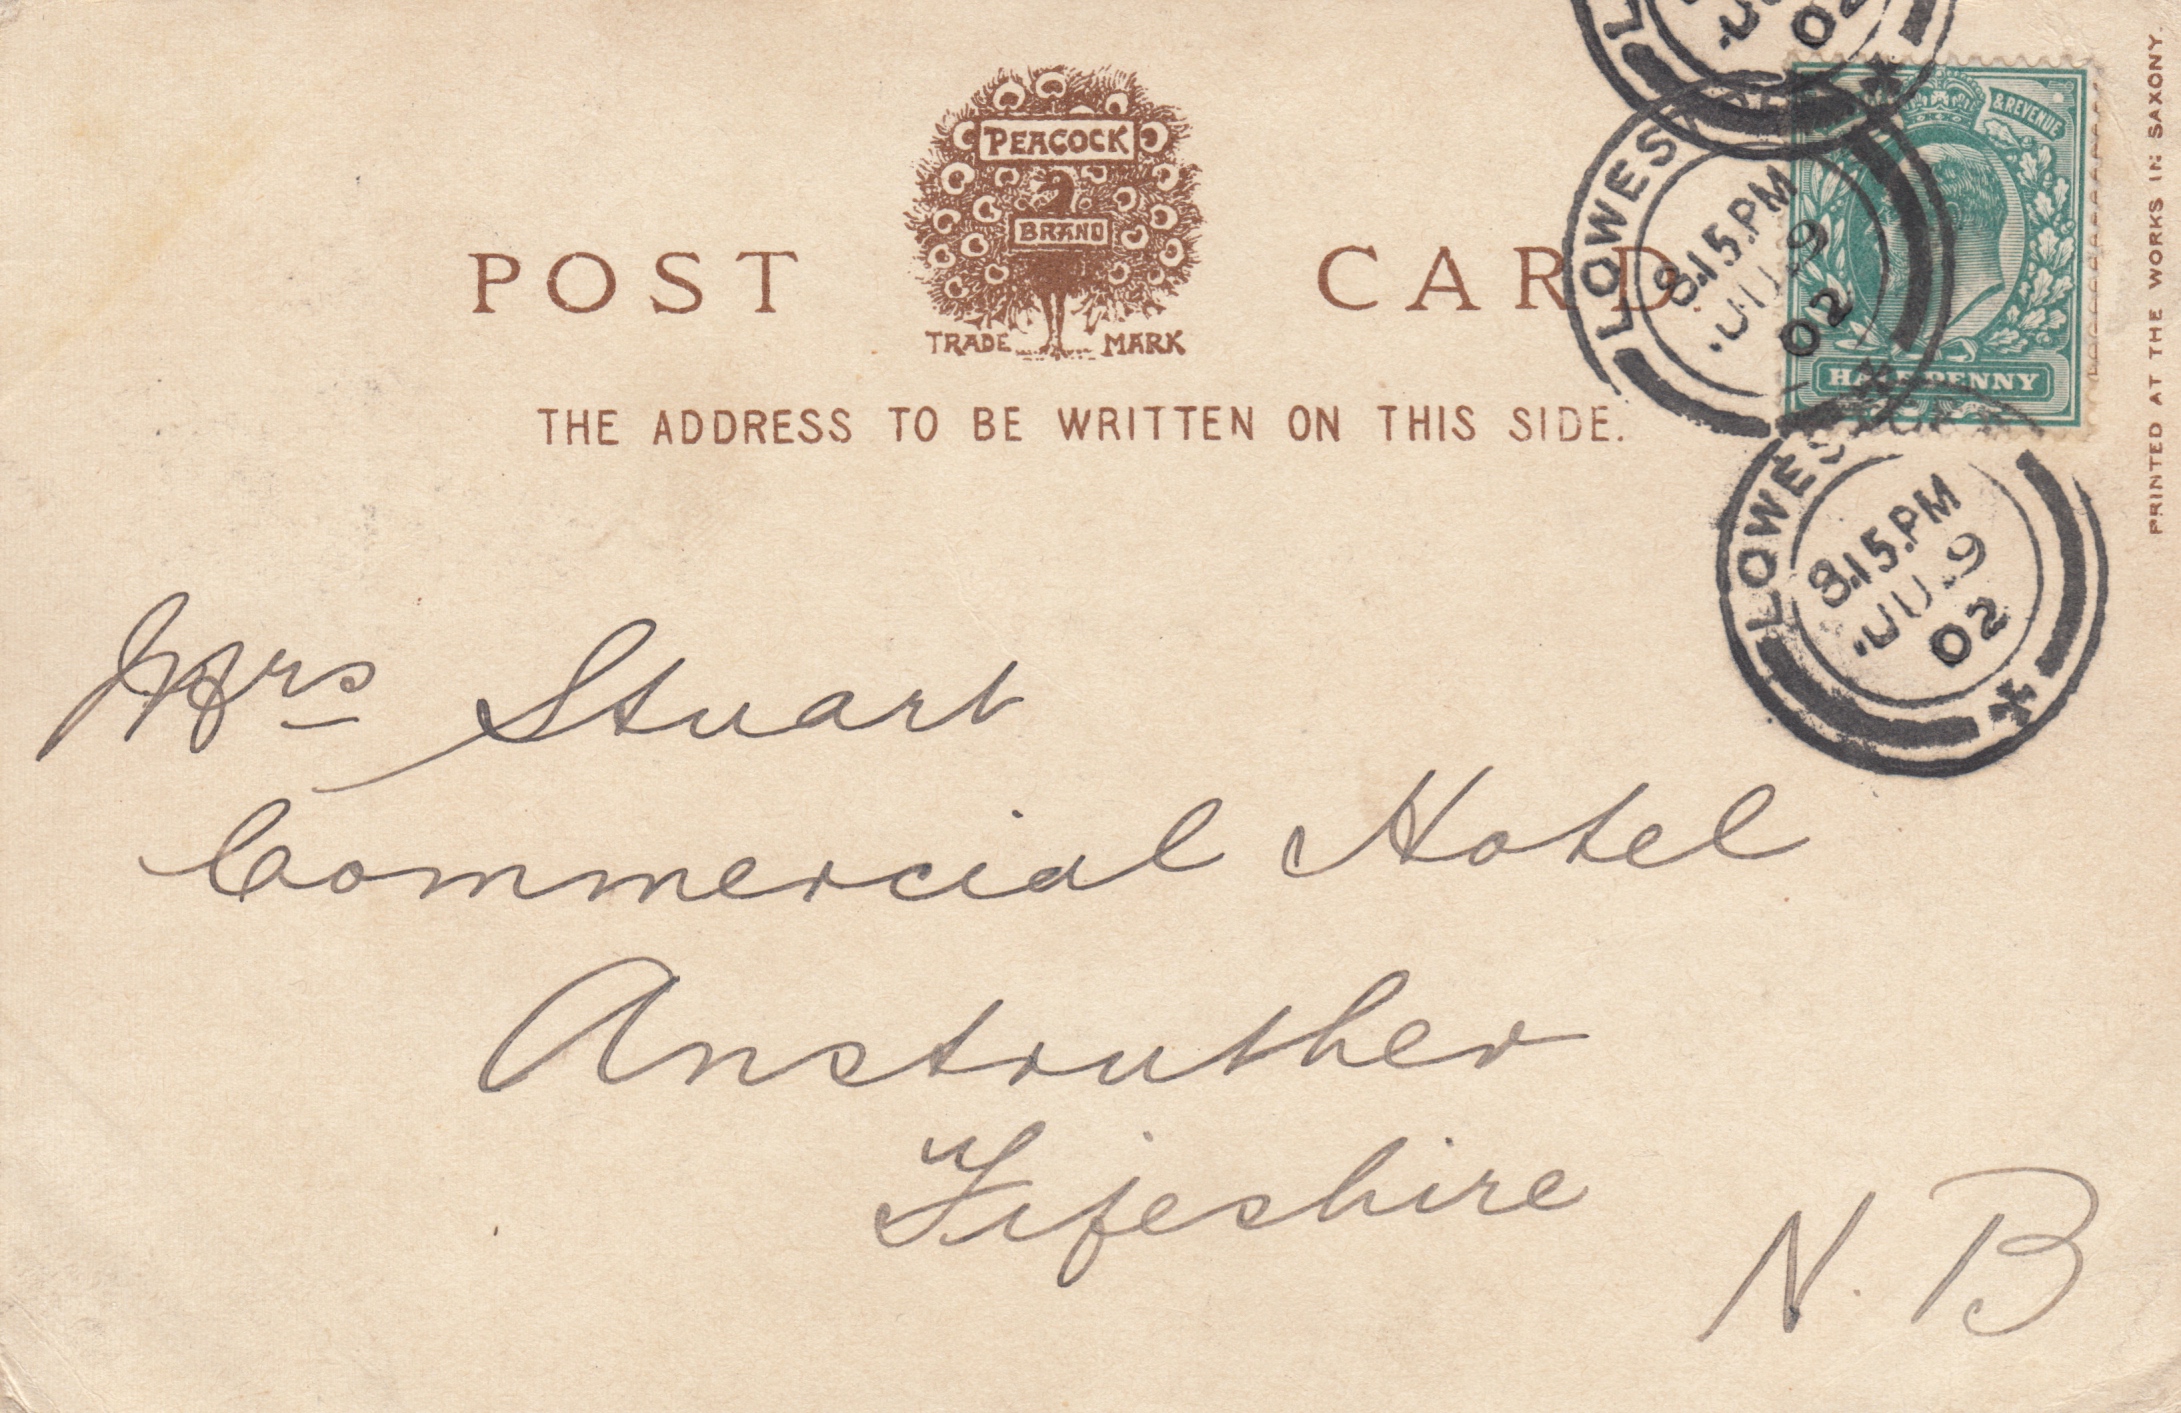 PEACOCK
BRAND
POST CARD
TRADE MARK
THE ADDRESS TO BE WRITTEN ON THIS SIDE.
02
LOWESTOFT
8.15.PM
JU 9
02
& REVENUE
HALFPENNY
LOWESTOFT
8.15.PM
JU.9
02
PRINTED AT THE WORKS IN SAXONY.
Mrs Stuart
Commercial Hotel
Anstruther
Fifeshire
N. B